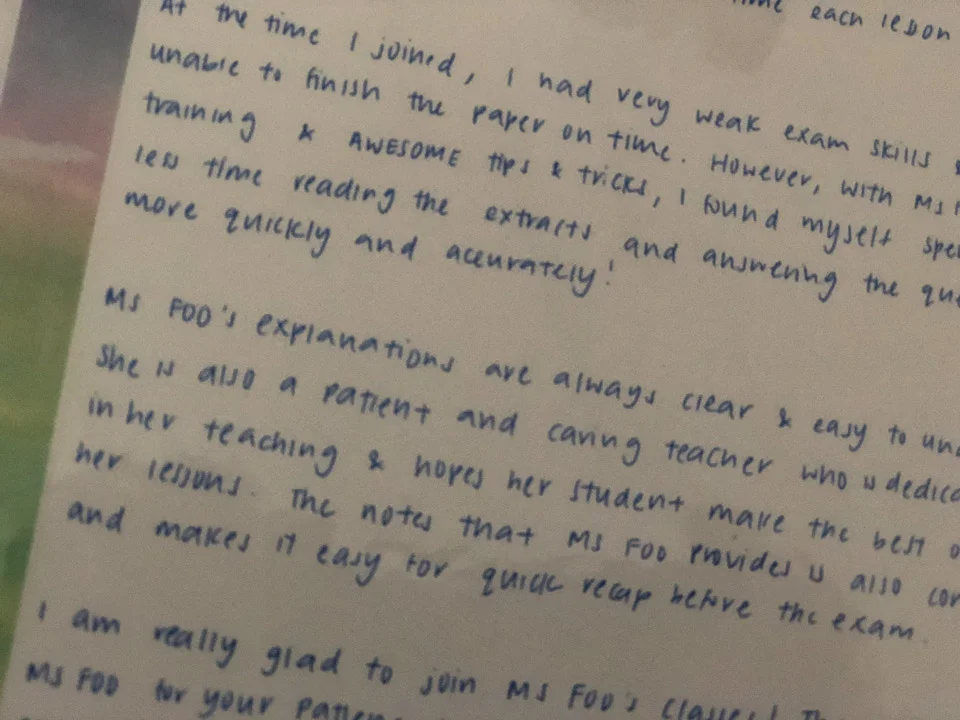 each lesson
At the time I joined, I had very weak exam skills
unable to finish the paper on time. However, with Ms
training & AWESOME tips & tricks, I found myself spe
less time reading the extracts and answering the que
more quickly and accurately!
Ms Foo's explanations are always clear & easy to un
She is also a patient and caring teacher who is dedica
in her teaching & hopes her student make the best o
her lessons. The notes that Ms Foo provides is also con
and makes it easy for quick recap before the exam.
I am really glad to join Ms Foo's classes!
Ms Foo for your patien